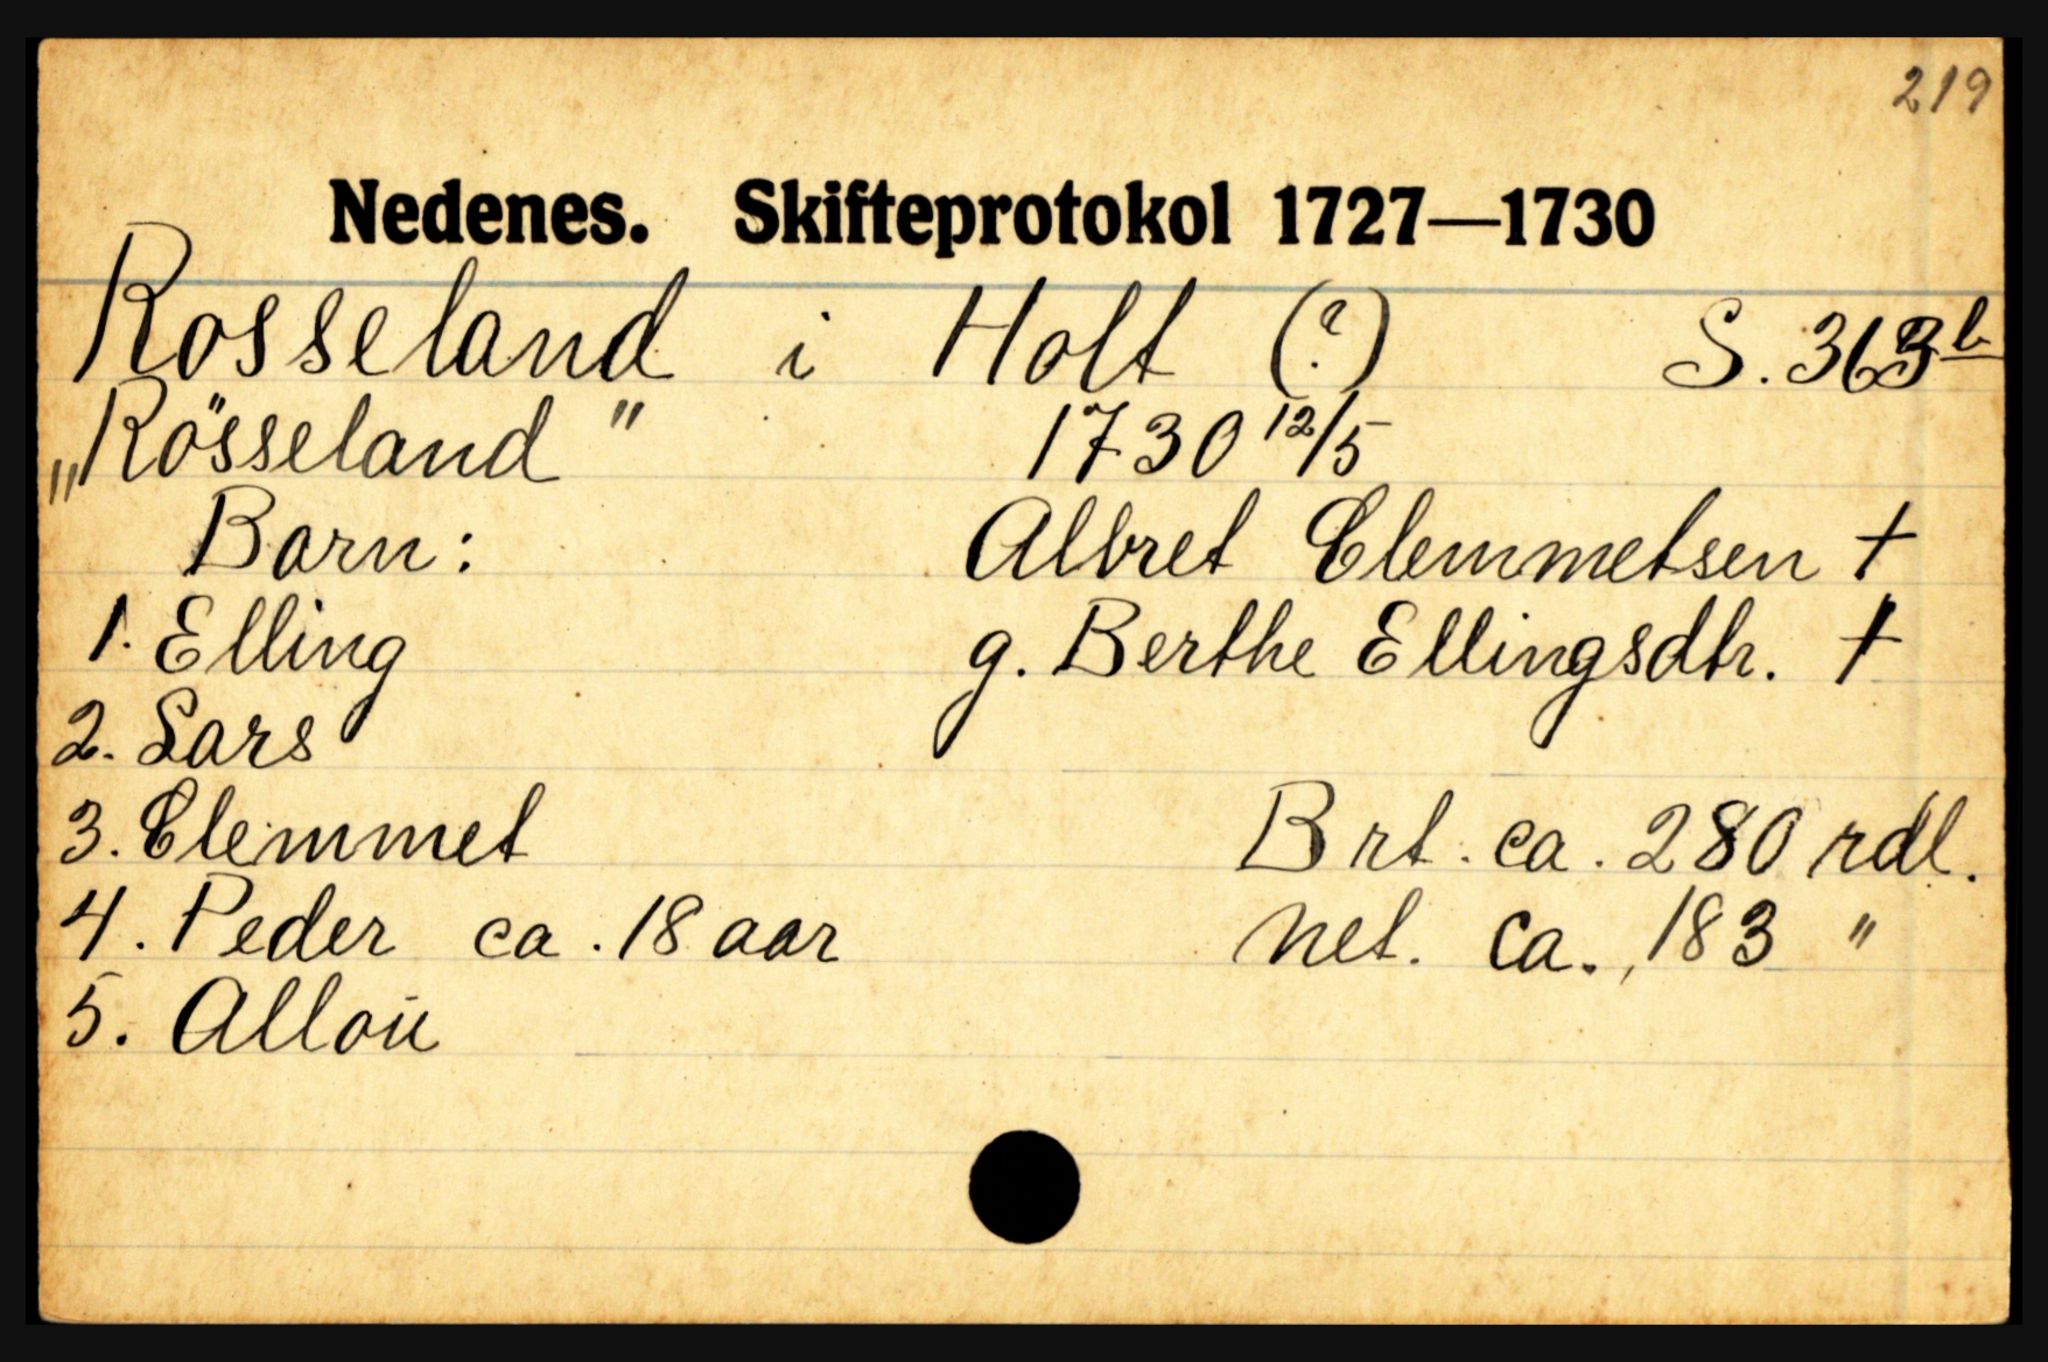 219
Nedenes. Skifteprotokol 1727—1730
Rosseland i Holt (?) S. 363b
„Rösseland" 1730 12/5
Barn: Albret Clemmetsen †
1. Elling g. Berthe Ellingsdtr. †
2. Lars
3. Clemmet Brt. ca. 280 rdl.
4. Peder ca. 18 aar net. ca. 183 "
5. Alloü